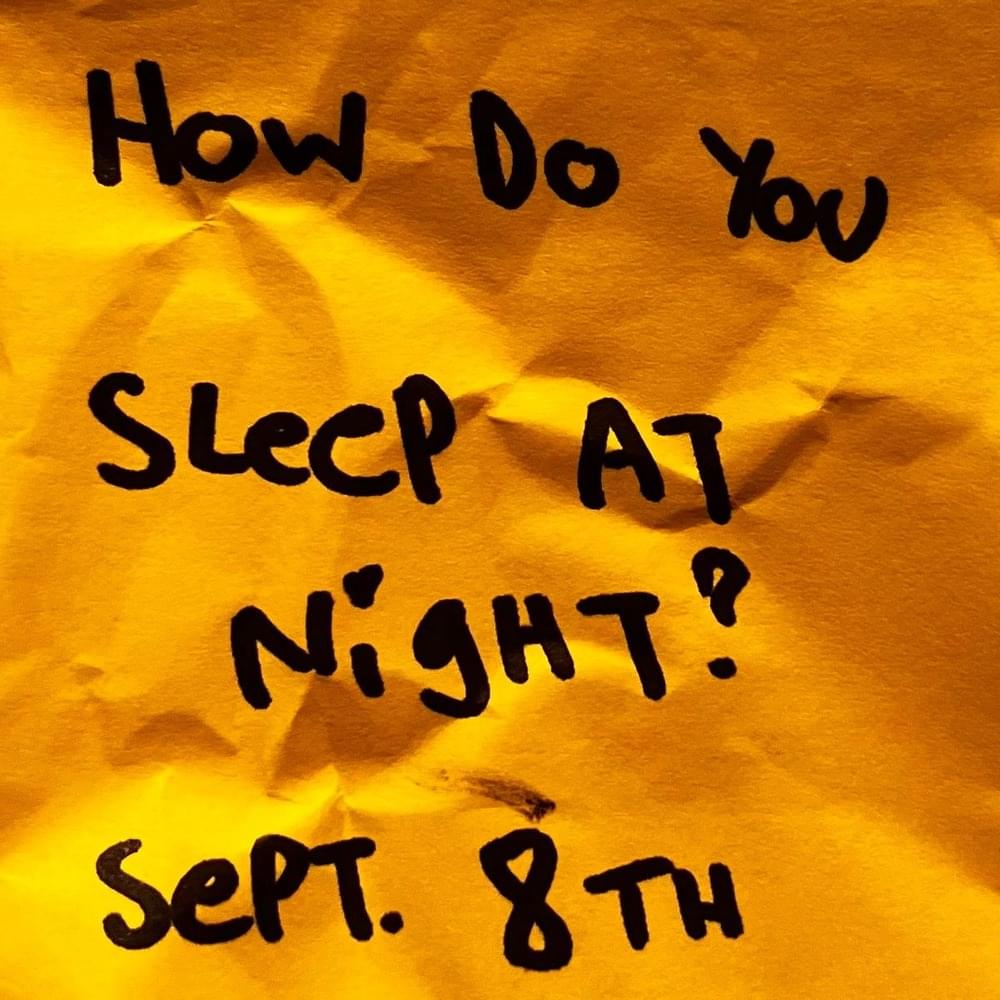 HOW DO YOU
SLeeP AT
NigHT?
SePT. 8TH